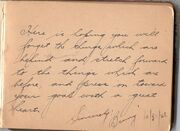 Here is hoping you will
forget the things which are
behind and stretch forward
to the things which are
before, and press on toward
your goal with a great
heart.
Sincerely